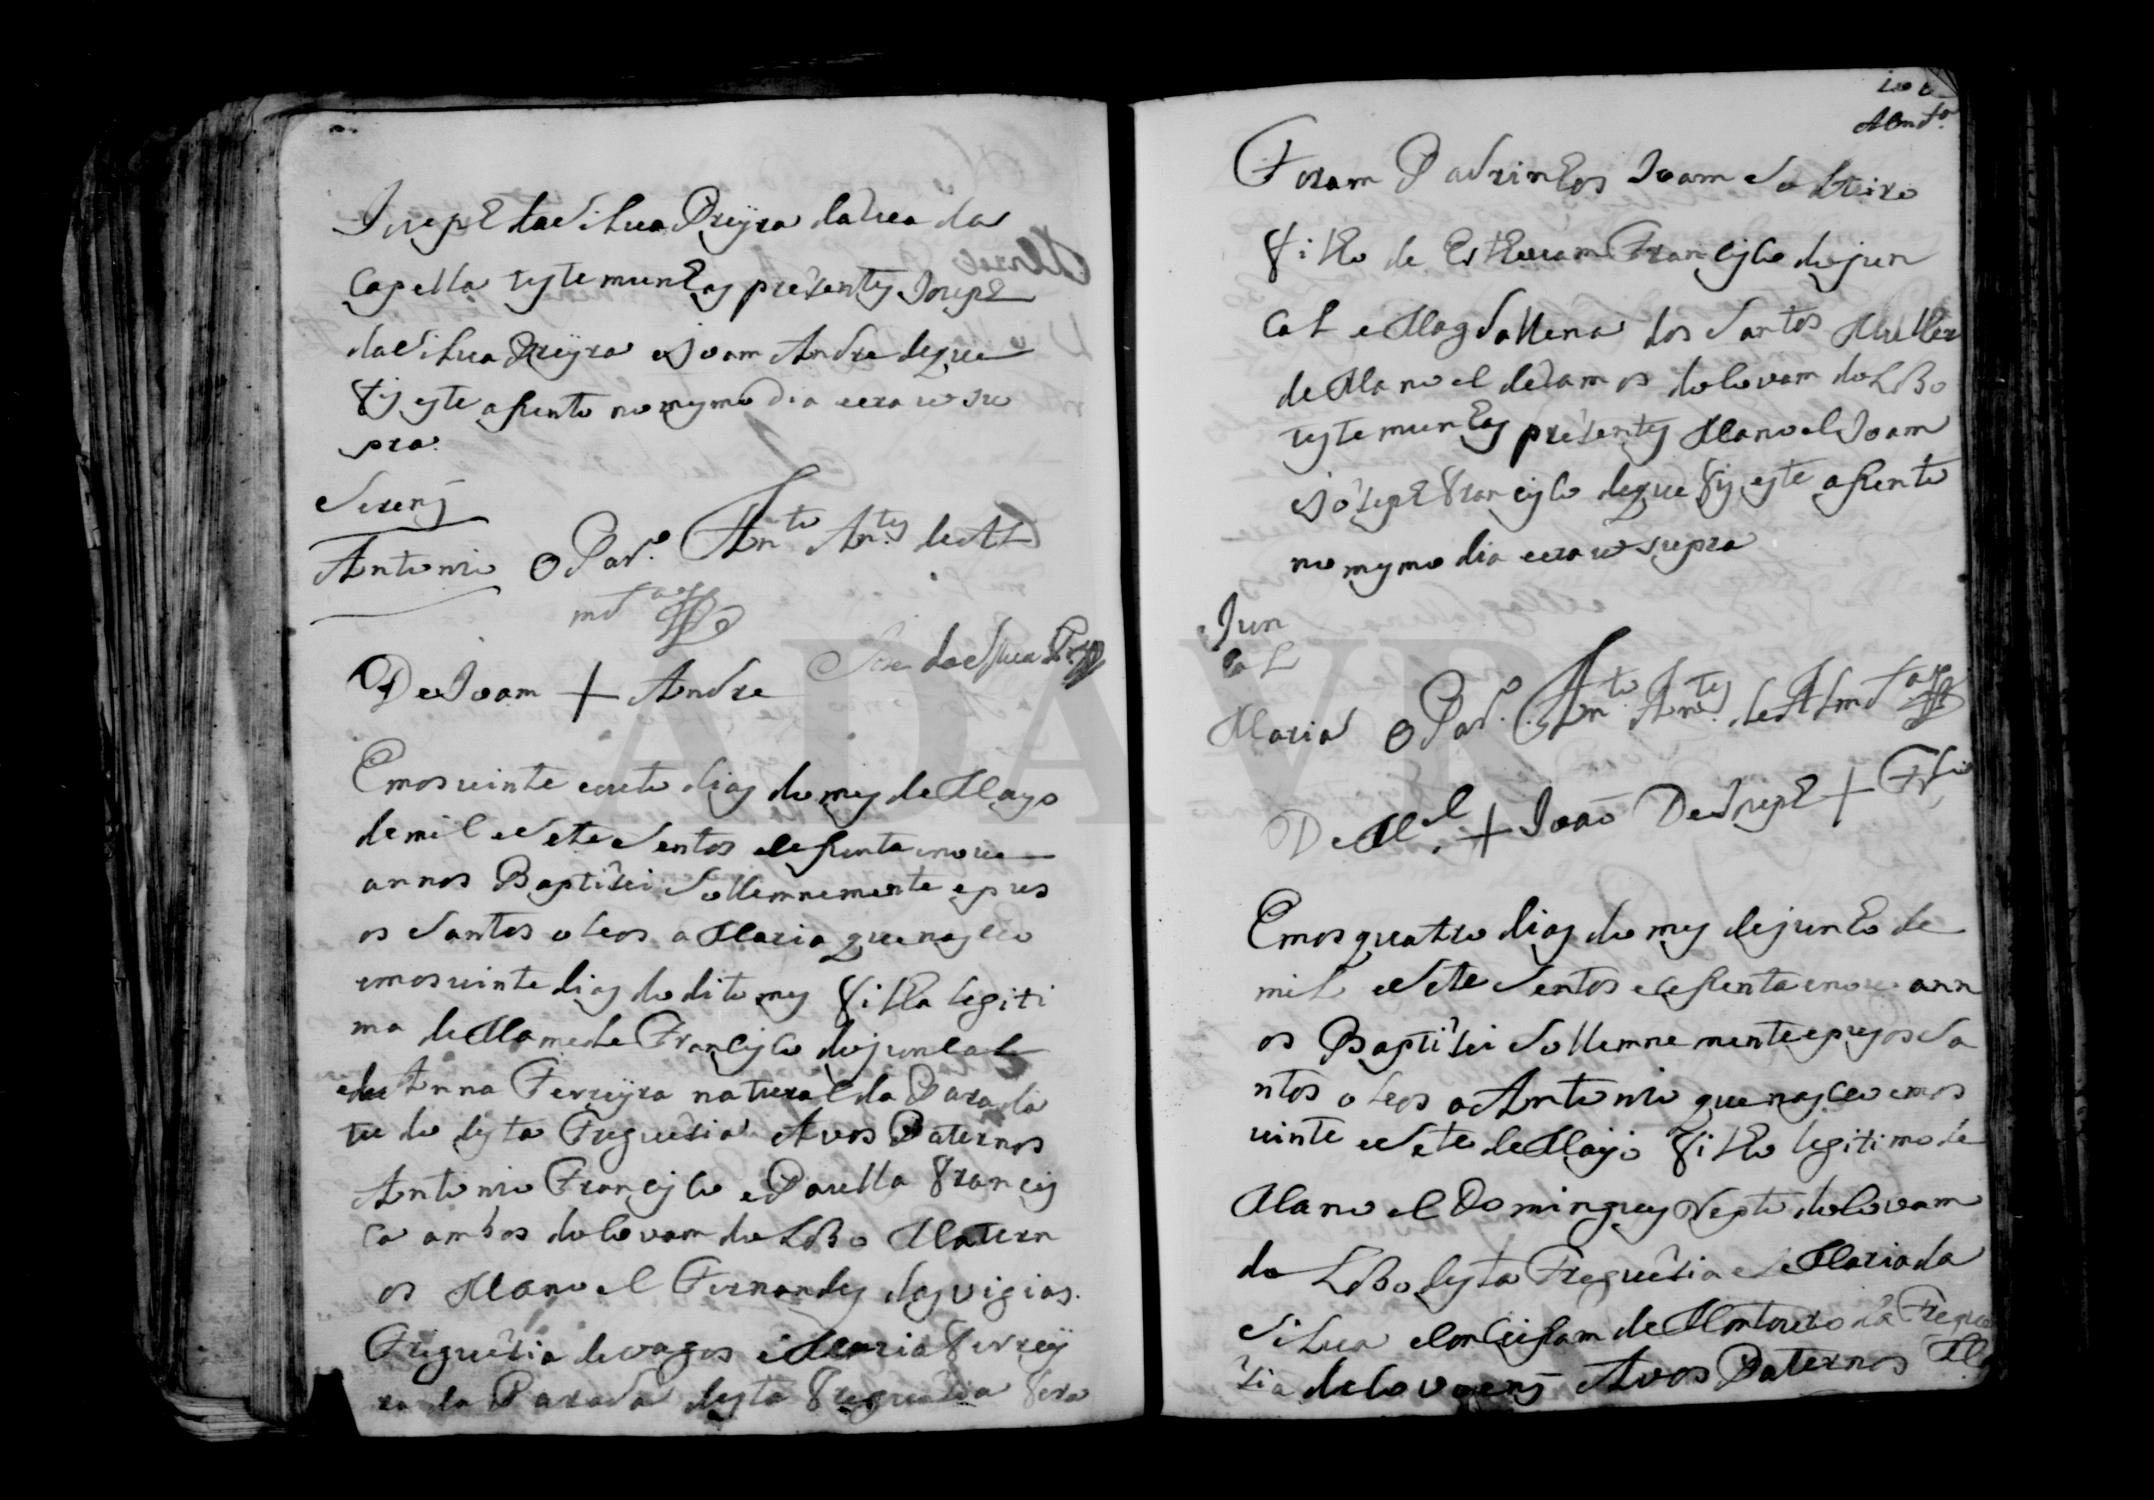 Joseph da Silva Preyra da Rua da
Capella testemunhas prezentes Joseph
da Silva Preyra e Joam Andre de que
fis este asento no mesmo dia e era ut su
pra
Serens
Antonio
O Par.º Ant.º An.tes de Al
md.ª
Joze da Silva Pr.ª
De Joam + Andre
Em os vinte e outo dias do mes de Mayo
de mil e Sete Sentos e sesenta e nove
annos Baptizei Sollemnemente e pus
os Santos oleos a Maria que nasceo
em os vinte dias do dito mes filha legiti
ma de Mamede Francisco do juncal
e de Anna Ferreyra natural da Parada
tudo desta Freguezia Avos Paternos
Antonio Francisco e Paulla Francis
ca ambos do Covam do Lobo Matern
os Manoel Fernandes das vigias
Freguezia de vagos e Maria Ferrey
ra da Parada desta Freguezia
ADAVR
Almd.ª
Foram Padrinhos Joam Solteiro
filho de Esthevam Francisco do jun
cal e Magdallena dos Santos Mulher
de Manoel de Ramos do Covam do Lobo
testemunhas prezentes Manoel Joam
e Jozeph Francisco de que fis este asento
no mesmo dia e era ut supra
Jun
cal
Maria
O Par.º Ant.º An.tes de Almd.ª
De M.el + João De Joseph + Fr.co
Em os quatro dias do mes de junho de
mil e Sete Sentos e sesenta e nove ann
os Baptizei Sollemnemente e pus os Sa
ntos oleos a Antonio que nasceo em os
vinte e Sete de Mayo filho legitimo de
Manoel Domingues Neto do Covam
do Lobo desta Freguezia e de Maria da
Silva e Conceisam de Montouro da Fregue
zia de Covoens Avos Paternos Ma